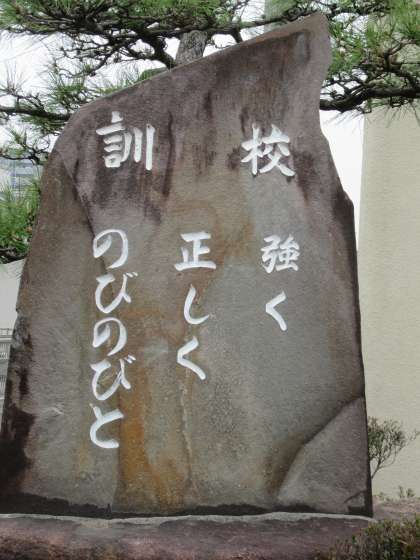 校訓
強く
正しく
のびのびと